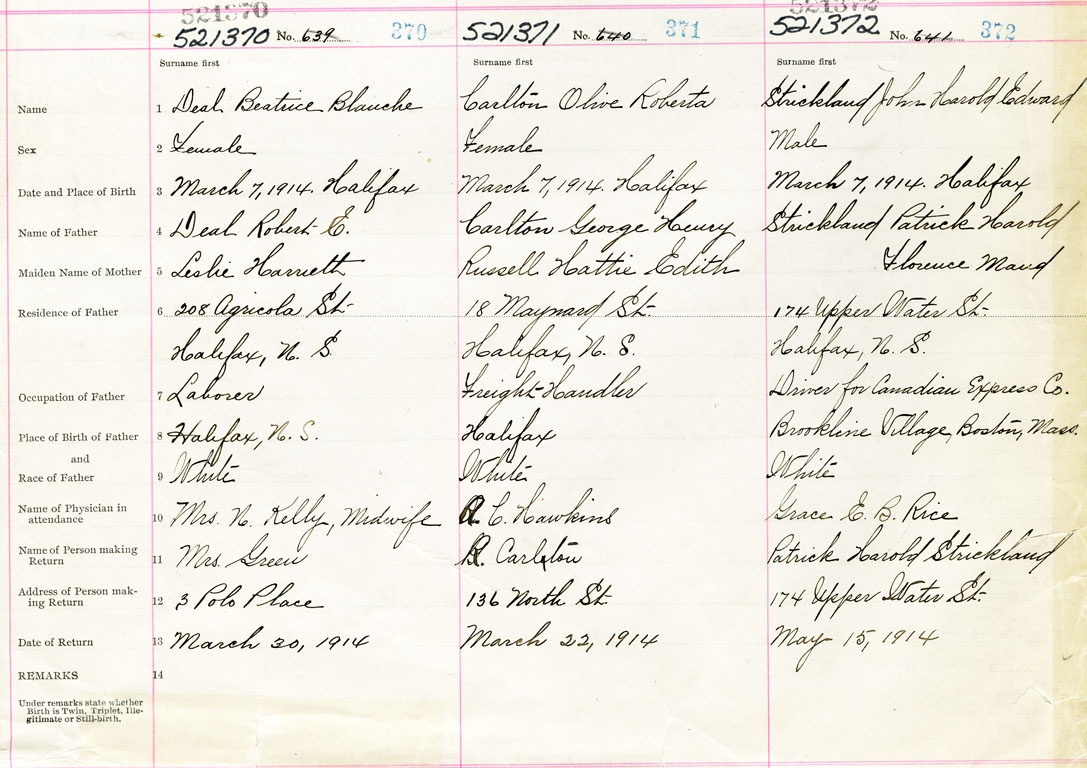 521370 521372
521370 No. 639 370 521371 No. 640 371 521372 No. 641 372
Surname first Surname first Surname first
Name 1 Deal Beatrice Blanche Carlton Olive Roberta Strickland John Harold Edward
Sex 2 Female Female Male
Date and Place of Birth 3 March 7, 1914. Halifax March 7, 1914. Halifax March 7, 1914. Halifax
Name of Father 4 Deal Robert E. Carlton George Henry Strickland Patrick Harold
Maiden Name of Mother 5 Leslie Harriett Russell Hattie Edith Florence Maud
Residence of Father 6 208 Agricola St. 18 Maynard St. 174 Upper Water St.
Halifax, N. S. Halifax, N. S. Halifax, N. S.
Occupation of Father 7 Laborer Freight Handler Driver for Canadian Express Co.
Place of Birth of Father 8 Halifax, N. S. Halifax Brookline Village, Boston, Mass.
and
Race of Father 9 White White White
Name of Physician in
attendance 10 Mrs. N. Kelly, Midwife C. Hawkins Grace E. B. Rice
Name of Person making
Return 11 Mrs. Green R. Carlton Patrick Harold Strickland
Address of Person mak-
ing Return 12 3 Polo Place 136 North St. 174 Upper Water St.
Date of Return 13 March 30, 1914 March 22, 1914 May 15, 1914
REMARKS 14
Under remarks state whether
Birth is Twin, Triplet, Ille-
gitimate or Still-birth.